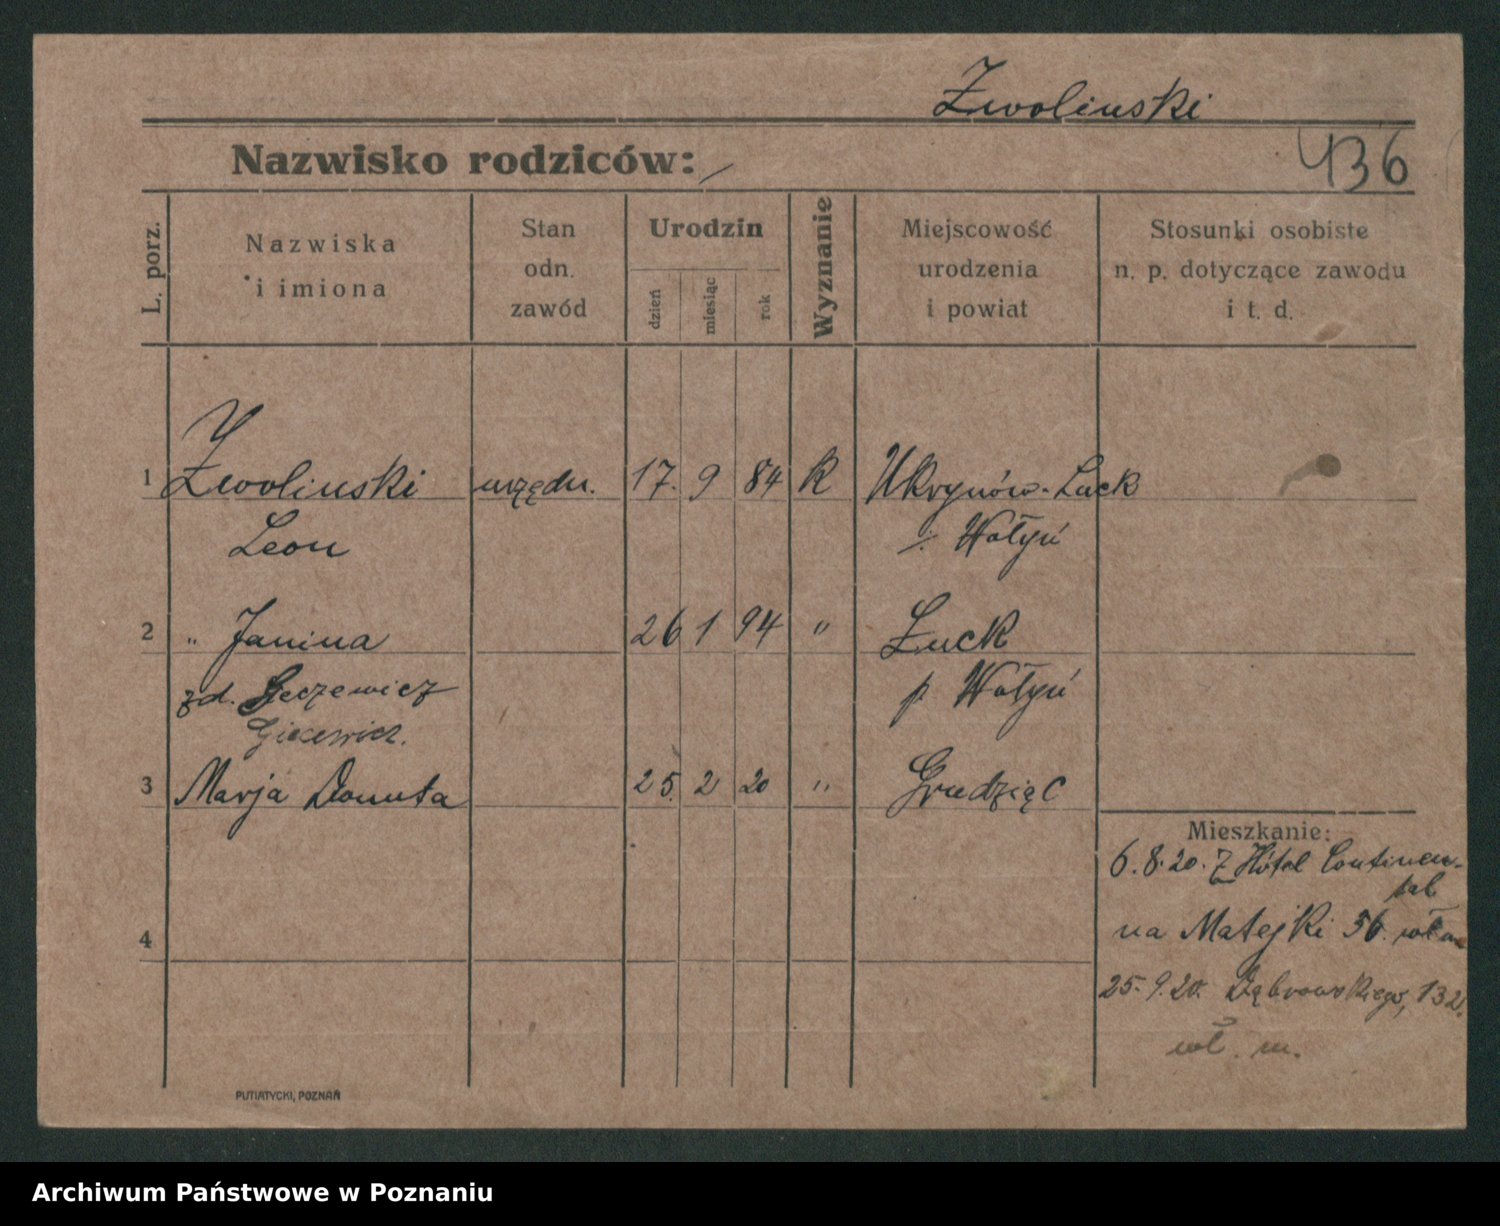 Zwolinski
Nazwisko rodziców:
436
L. porz.
Nazwiska
i imiona
Stan
odn.
zawód
Urodzin
dzień
miesiąc
rok
Wyznanie
Miejscowość
urodzenia
i powiat
Stosunki osobiste
n. p. dotyczące zawodu
i t. d.
1 Zwolinski urzędn. 17. 9 84 K Ukrynów-Łuck
Leon Wołyń
2 " Janina 26 1 94 " Łuck
zd. p Wołyń
3 Marja Donuta 25. 2 20 " Grudziąc
Mieszkanie:
6.8.20. Z Hôtel Continen-
tal
na Matejki 56
4
25.9.20. Dąbrowskiego, 132.
wł. m.
PUTIATYCKI, POZNAŃ
Archiwum Państwowe w Poznaniu